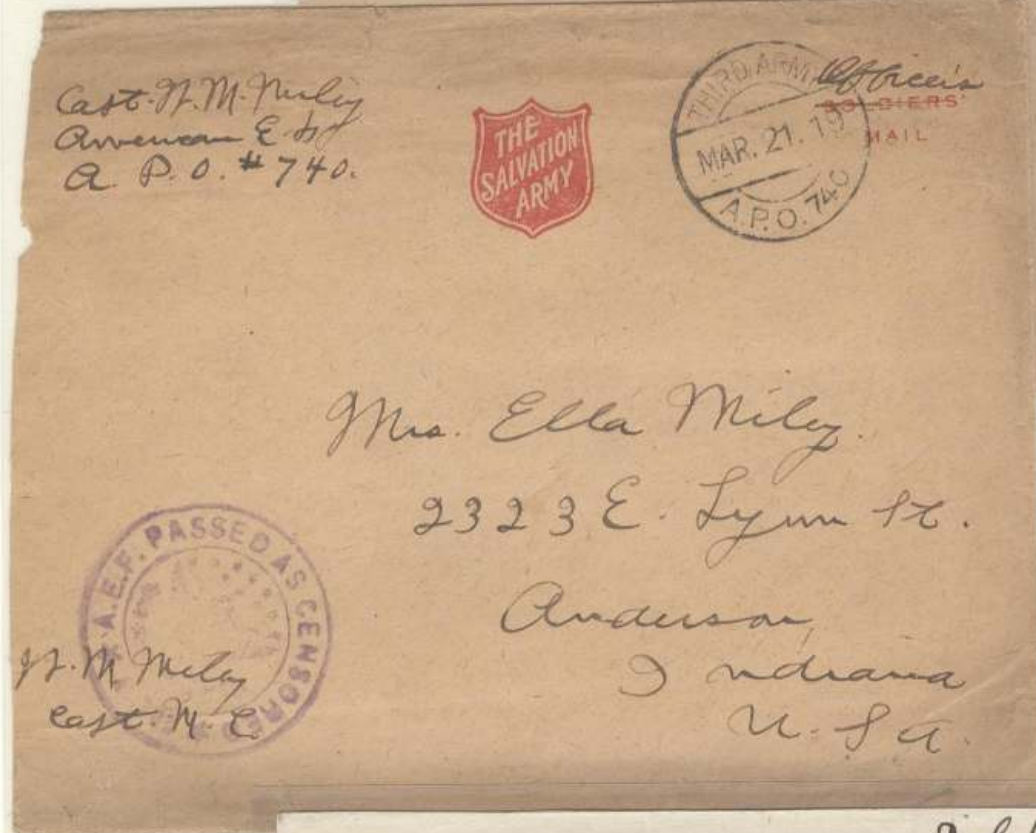 Capt. W. M. Miley
American E.
A. P. O. #740.
THE
SALVATION
ARMY
THIRD ARMY
MAR. 21. 19
A.P.O. 740
Officer's
SOLDIERS'
MAIL
Mrs. Ella Miley.
2323 E. Lynn St.
Anderson,
Indiana
U.S.A.
A.E.F. PASSED AS CENSORED
W. M. Miley
Capt. M. C.